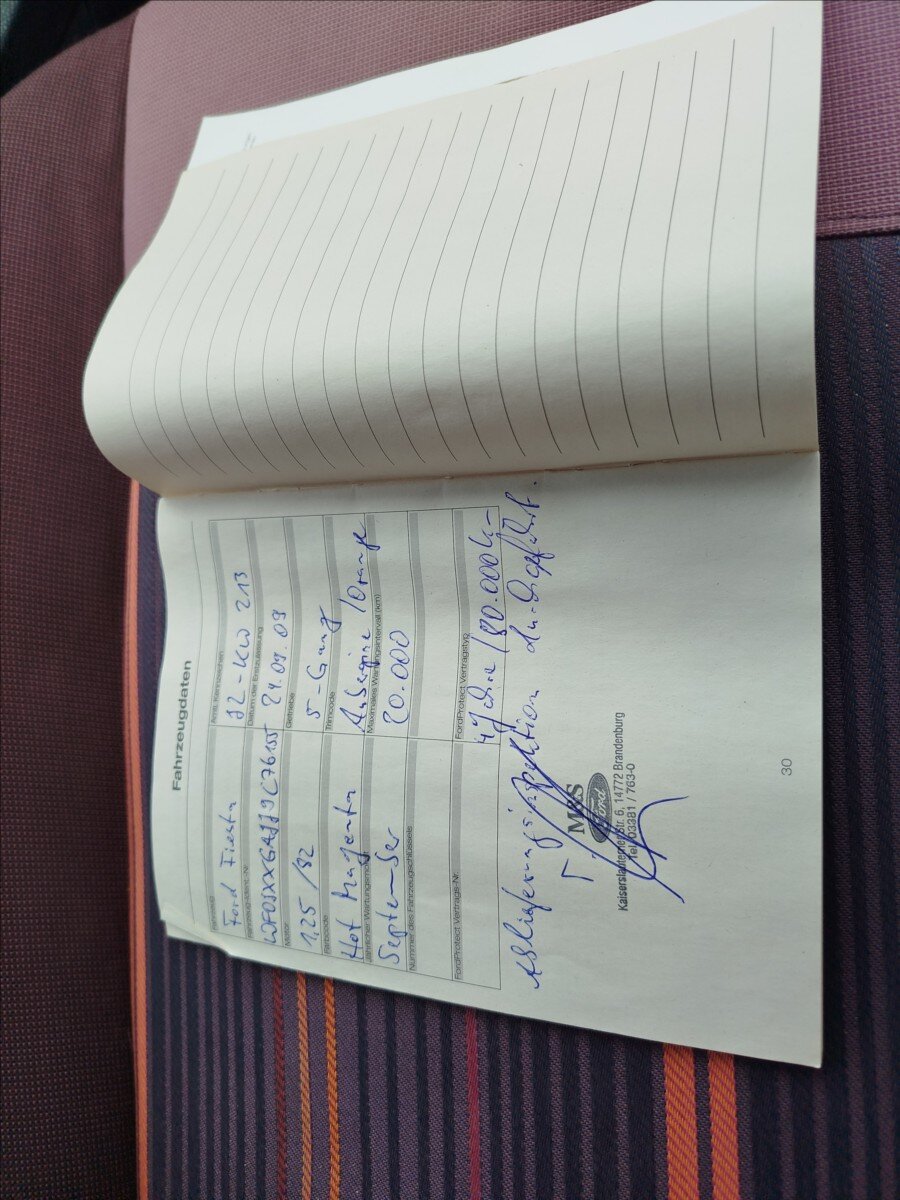 Fahrzeugdaten
Fahrzeug
Amtl. Kennzeichen
Ford Fiesta
JL-KW 213
Fahrzeug-Ident.-Nr.
Datum der Erstzulassung
WF0JXXGAJJ9C76155
24.09.09
Motor
Getriebe
1,25 / 82
5-Gang
Farbcode
Trimcode
Hot Magenta
Aubergine / Orange
Jährlicher Wartungsmonat
Maximales Wartungsintervall (km)
September
20.000
Nummer des Fahrzeugschlüssels
FordProtect Vertrags-Nr.
FordProtect Vertragstyp
4 Jahre / 80.000 km
Ablieferungsinspektion durchgeführt.
M&S
Ford
Kaiserslauterner Str. 6, 14772 Brandenburg
Tel. 03381 / 763-0
30